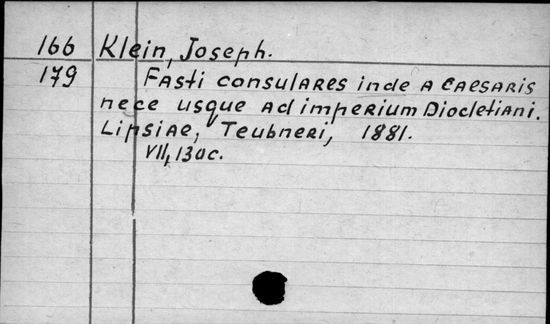 166 Klein, Joseph.
179 Fasti consulares inde a Caesaris
nece usque ad imperium Diocletiani.
Lipsiae, Teubneri, 1881.
VII, 130c.